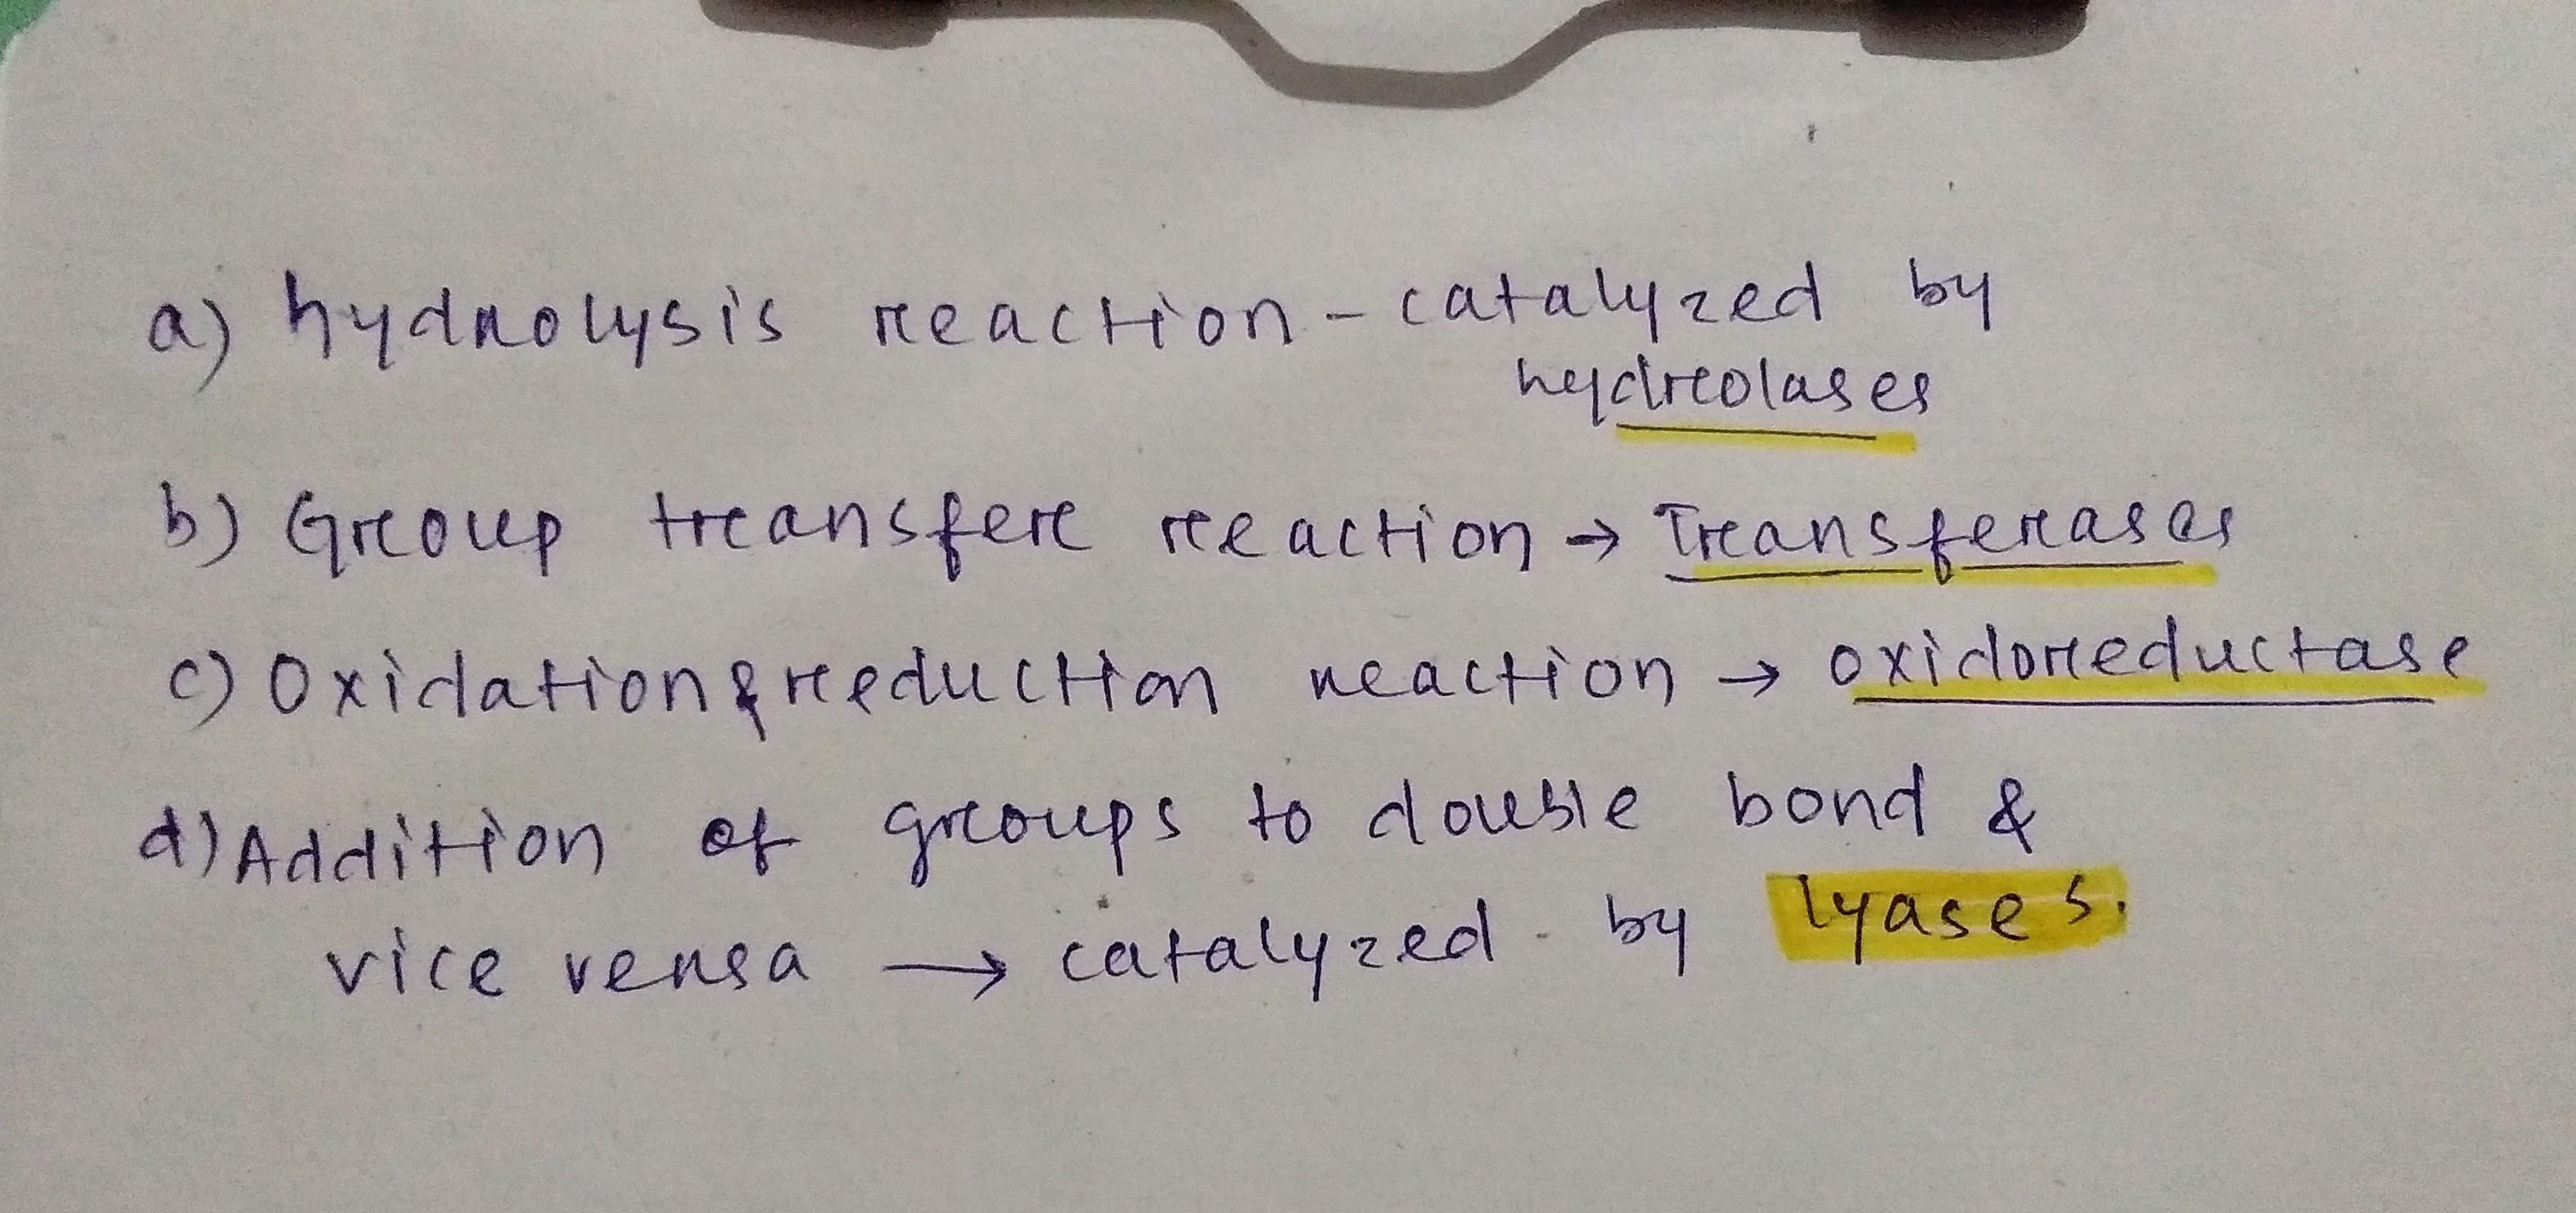 a) hydrolysis reaction - catalyzed by
hydrolases
b) Group transfer reaction → Transferases
c) Oxidation & reduction reaction → oxidoreductase
d) Addition of groups to double bond &
vice versa → catalyzed by lyases.